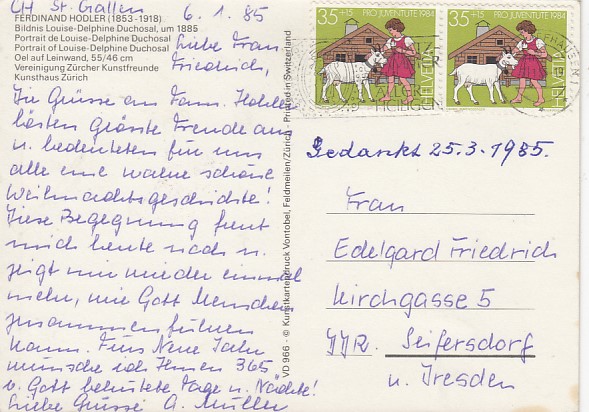 CH St. Gallen 6.1.85
FERDINAND HODLER (1853-1918)
Bildnis Louise-Delphine Duchosal, um 1885
Portrait de Louise-Delphine Duchosal
Portrait of Louise-Delphine Duchosal
Oel auf Leinwand, 55/46 cm
Vereinigung Zürcher Kunstfreunde
Kunsthaus Zürich
Liebe Frau
Friedrich,
Die Grüsse an Fam.
lösten Grösste Freude aus
u. bedeuteten für uns
alle eine wahre schöne
Weihnachtsgeschichte!
Diese Begegnung freut
mich heute noch u.
zeigt mir wieder einmal
mehr, wie Gott Menschen
zusammenführen
kann. Fürs Neue Jahr
wünsche ich Ihnen 365
v. Gott behütete Tage u. Nächte!
Liebe Grüsse A. Müller
VD 966 - © Kunstkartendruck Vontobel, Feldmeilen/Zürich - Printed in Switzerland
35+15 PRO JUVENTUTE 1984
HELVETIA
35+15 PRO JUVENTUTE 1984
HELVETIA
ALLER
HEILIGEN
Gedankt 25.3.1985.
Frau
Edelgard Friedrich
Kirchgasse 5
DDR. Seifersdorf
u. Dresden